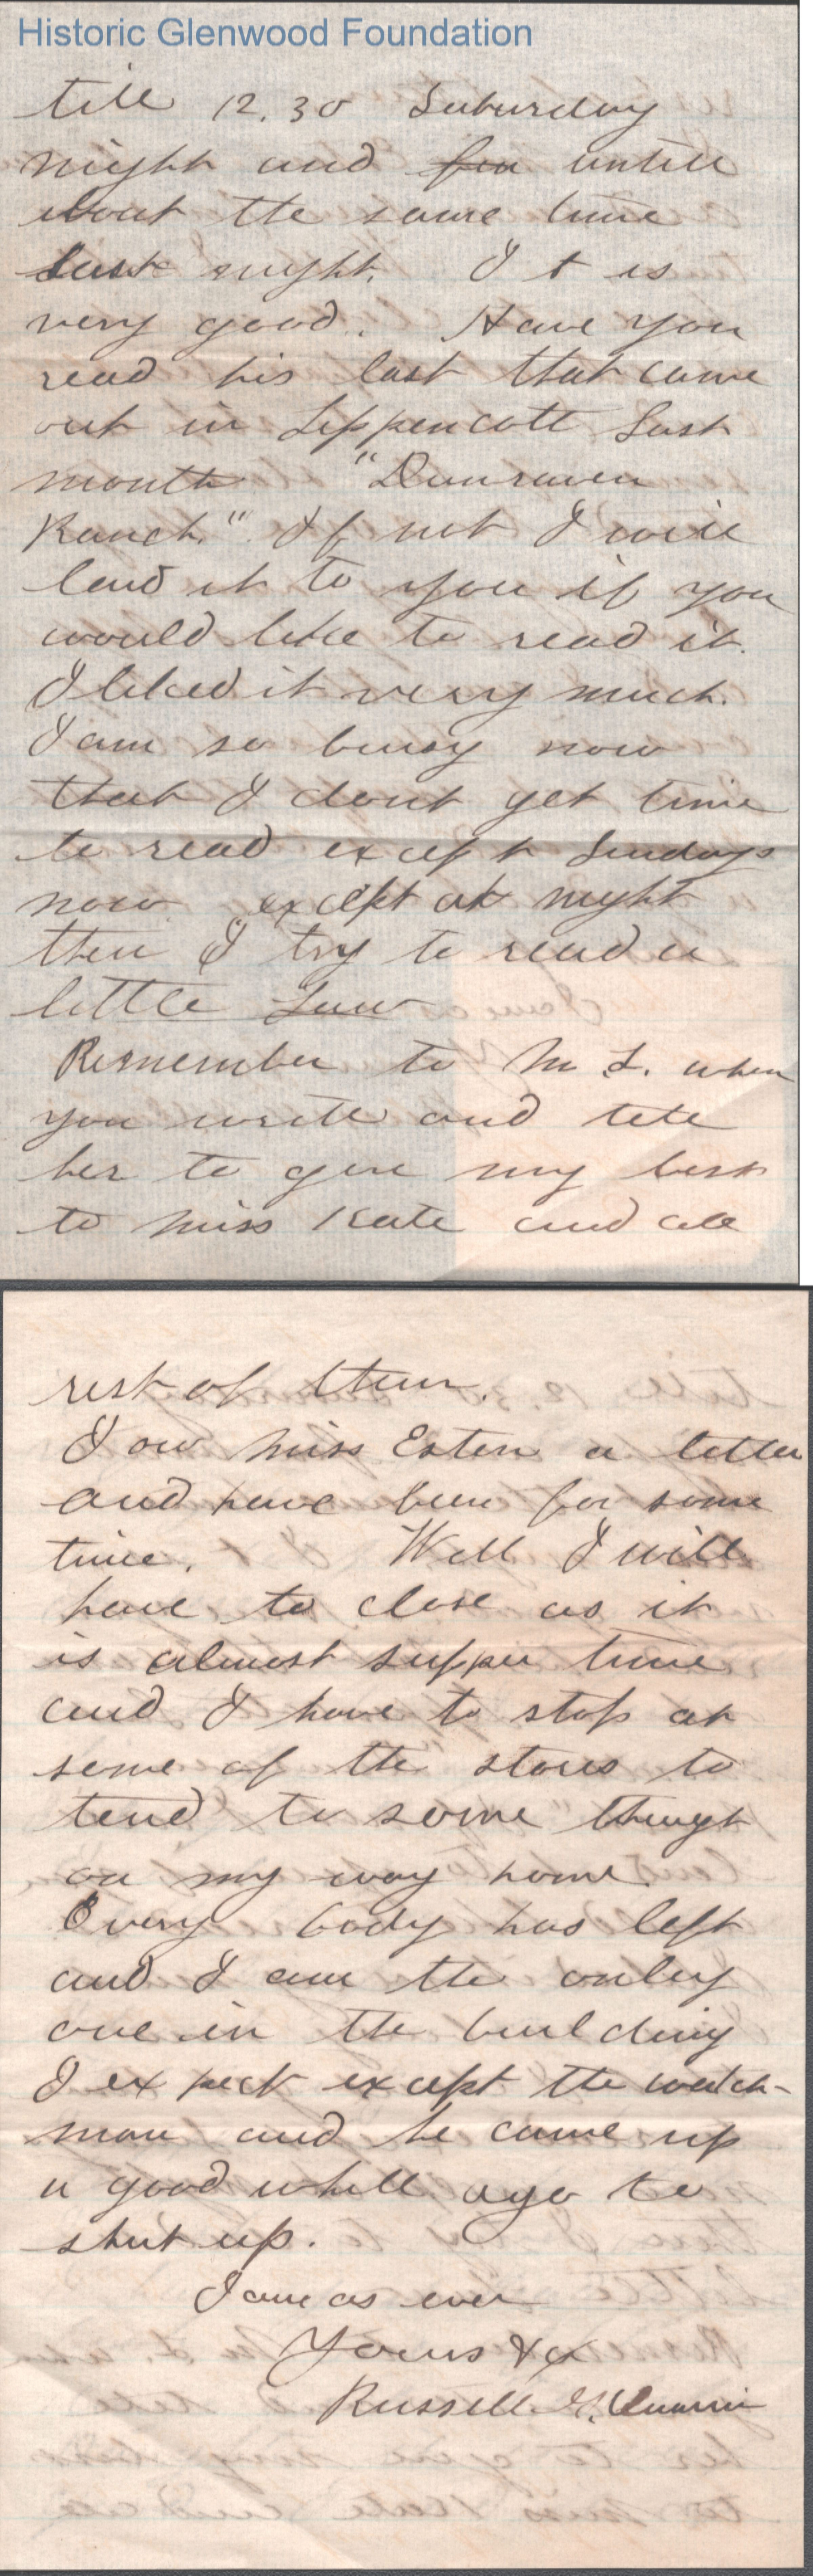 Historic Glenwood Foundation
till 12.30 Saturday
night and untill
about the same time
last night. It is
very good. Have you
read his last that came
out in Lippencott last
month "Dunraven
Ranch." If not I will
lend it to you if you
would like to read it.
I liked it very much.
I am so busy now
that I dont get time
to read except Sundays
now except at night
then I try to read a
little Law
Remember to M. L. when
you write and tell
her to give my best
to Miss Kate and all
rest of them.
I ow Miss Esten a letter
and have been for some
time. Well I will
have to close as it
is almost supper time
and I have to stop at
some of the stores to
tend to some things
on my way home.
Every body has left
and I am the only
one in the building
I expect except the watch-
man and he came up
a good while ago to
shut up.
I am as ever
Yours &c
Russell